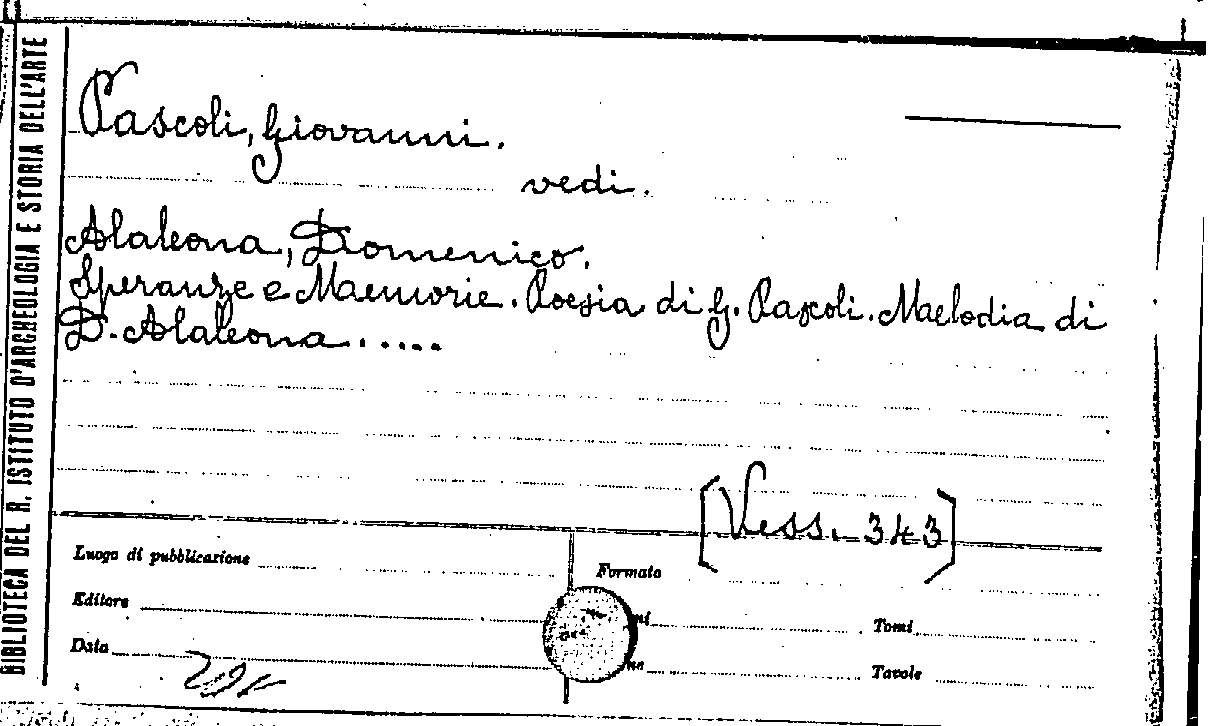 BIBLIOTECA DEL R. ISTITUTO D'ARCHEOLOGIA E STORIA DELL'ARTE
Pascoli, Giovanni.
vedi.
Alaleona, Domenico.
Speranze e Memorie. Poesia di G. Pascoli. Melodia di
D. Alaleona.....
[Vess. 343]
Luogo di pubblicazione
Formato
Editore
Tomi
Data
Tavole